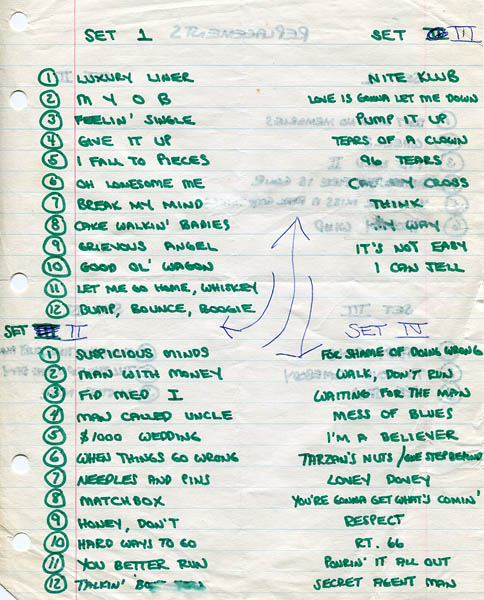 SET 1
1 LUXURY LINER
2 M Y O B
3 FEELIN' SINGLE
4 GIVE IT UP
5 I FALL TO PIECES
6 OH LONESOME ME
7 BREAK MY MIND
8 CAKE WALKIN' BABIES
9 GRIEVOUS ANGEL
10 GOOD OL' WAGON
11 LET ME GO HOME, WHISKEY
12 BUMP, BOUNCE, BOOGIE
SET III
NITE KLUB
LOVE IS GONNA LET ME DOWN
PUMP IT UP
TEARS OF A CLOWN
96 TEARS
CALVARY CROSS
THINK
MY WAY
IT'S NOT EASY
I CAN TELL
SET II
1 SUSPICIOUS MINDS
2 MAN WITH MONEY
3 FID MED I
4 MAN CALLED UNCLE
5 $1000 WEDDING
6 WHEN THINGS GO WRONG
7 NEEDLES AND PINS
8 MATCHBOX
9 HONEY, DON'T
10 HARD WAYS TO GO
11 YOU BETTER RUN
12 TALKIN'
SET IV
FOR SHAME OF DOING WRONG
WALK, DON'T RUN
WAITING FOR THE MAN
MESS OF BLUES
I'M A BELIEVER
TARZAN'S NUTS / ONE STEP BEYOND
LOVEY DOVEY
YOU'RE GONNA GET WHAT'S COMIN'
RESPECT
RT. 66
POURIN' IT ALL OUT
SECRET AGENT MAN
REPLACEMENTS